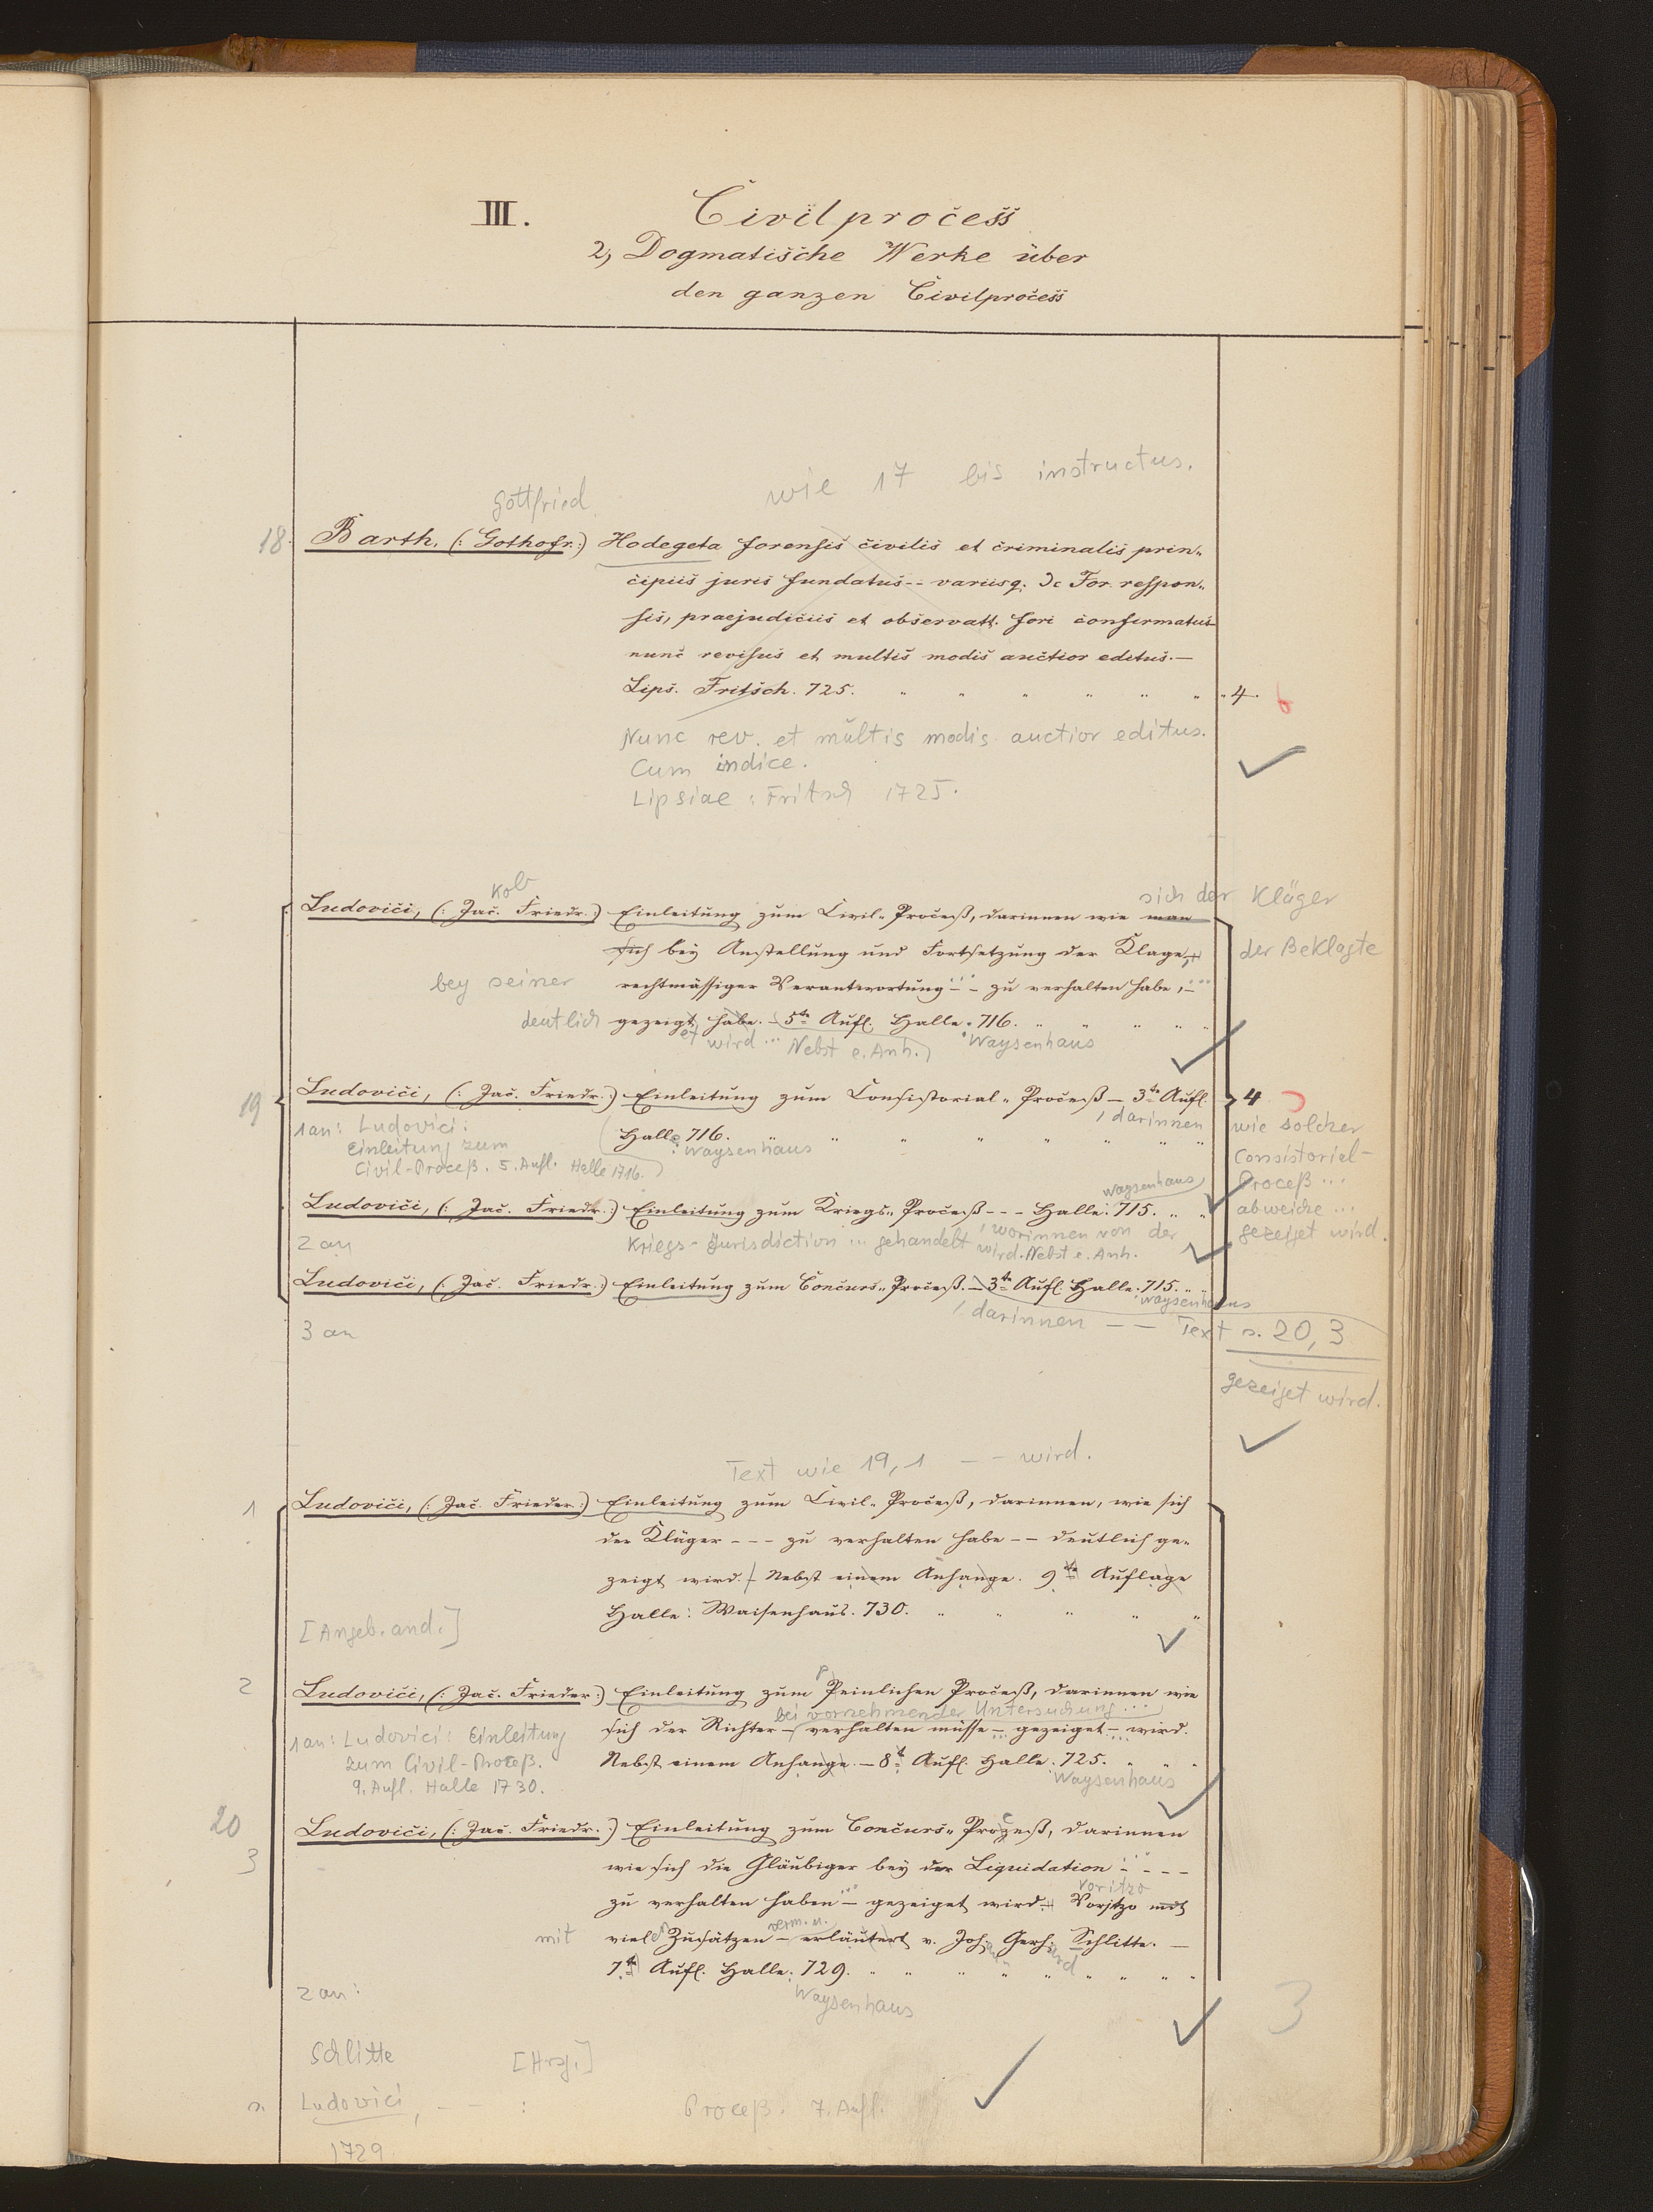 III. Civilprocess
2, Dogmatische Werke über
den ganzen Civilprocess
wie 17 bis instructus.
Gottfried
18. Barth, (: Gothofr.:) Hodegeta forensis civilis et criminalis prin„
cipiis juris fundatus -- variisq. Jc For. respon„
sis, praejudiciis et observatt. fori confirmatus
nunc revisus et multis modis auctior editus. —
Lips. Fritsch. 725. " " " " " " 4.
Nunc rev. et multis modis auctior editus.
Cum indice.
Lipsiae: Fritsch 1725.
kob sich der Kläger
Ludovici, (: Jac. Friedr.:) Einleitung zum Civil„Proceß, darinnen wie man
sich bey Anstellung und Fortsetzung der Klage, der Beklagte
bey seiner rechtmässiger Verantwortung -- zu verhalten habe, -
deutlich gezeigt habe. - 5te Aufl. Halle. 716. " " " " "
et wird ... Nebst e. Anh.) Waysenhaus
19 Ludovici, (: Jac. Friedr.:) Einleitung zum Consistorial„Proceß — 3te Aufl. 4
, darinnen wie solcher
1 an: Ludovici: Halle 716. " " " " " " "
Einleitung zum : Waysenhaus Consistorial-
Civil-Proceß. 5. Aufl. Halle 1716.) Proceß ...
Waysenhaus
Ludovici, (: Jac. Friedr.:) Einleitung zum Kriegs„Proceß --- Halle: 715. " " abweiche ...
, worinnen von der gezeiget wird.
2 an Kriegs-Jurisdiction ... gehandelt wird. Nebst e. Anh.
Ludovici, (: Jac. Friedr.:) Einleitung zum Concurs„Proceß. — 3te Aufl. Halle. 715. " "
: Waysenhaus
3 an , darinnen -- Text s. 20, 3
gezeiget wird.
Text wie 19, 1 -- wird.
1 Ludovici, (: Jac. Frieder:) Einleitung zum Civil„Proceß, darinnen, wie sich
der Kläger --- zu verhalten habe -- deutlich ge„
zeigt wird. - Nebst einem Anhange. 9te Auflage
Halle: Waisenhaus. 730. " " " " "
[Angeb. and.]
2 Ludovici, (: Jac. Frieder:) Einleitung zum Peinlichen Proceß, darinnen wie
bei vornehmender Untersuchung ...
1 an: Ludovici: Einleitung sich der Richter - verhalten müsse - gezeiget - wird.
zum Civil-Proceß. Nebst einem Anhange. — 8te Aufl. Halle: 725. " " "
9. Aufl. Halle 1730. : Waysenhaus
20
3 Ludovici, (: Jac. Friedr.:) Einleitung zum Concurs„Prozeß, darinnen
wie sich die Gläubiger bey der Liquidation ---
zu verhalten haben - gezeiget wird. Vorjtzo mit
voritzo
verm. u.
mit viel Zusätzen - erläutert v. Joh. Gerh. Schlitte. —
7te Aufl. Halle: 729. " " " " " " " " "
2 an: Waysenhaus
3
Schlitte [Hrsg.]
s. Ludovici, -- : Proceß. 7. Aufl.
1729